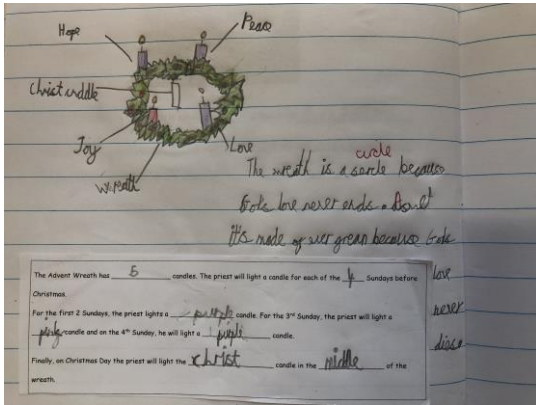 Hope
Peace
Christ
Joy
Love
wreath
circle
The wreath is a sercle because
Gods love never ends.
it's made of ever grean because Gods
love
never
dies.
The Advent Wreath has 5 candles. The priest will light a candle for each of the 4 Sundays before
Christmas.
For the first 2 Sundays, the priest lights a purple candle. For the 3rd Sunday, the priest will light a
pink candle and on the 4th Sunday, he will light a purple candle.
Finally, on Christmas Day the priest will light the christ candle in the middle of the
wreath.